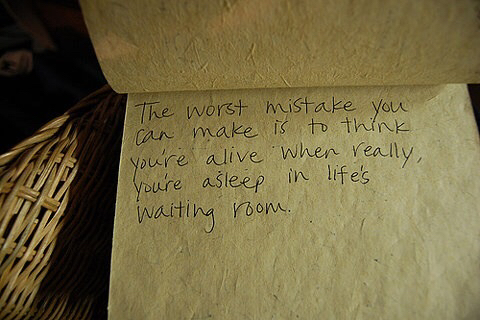 The worst mistake you
can make is to think
you're alive when really,
you're asleep in life's
waiting room.